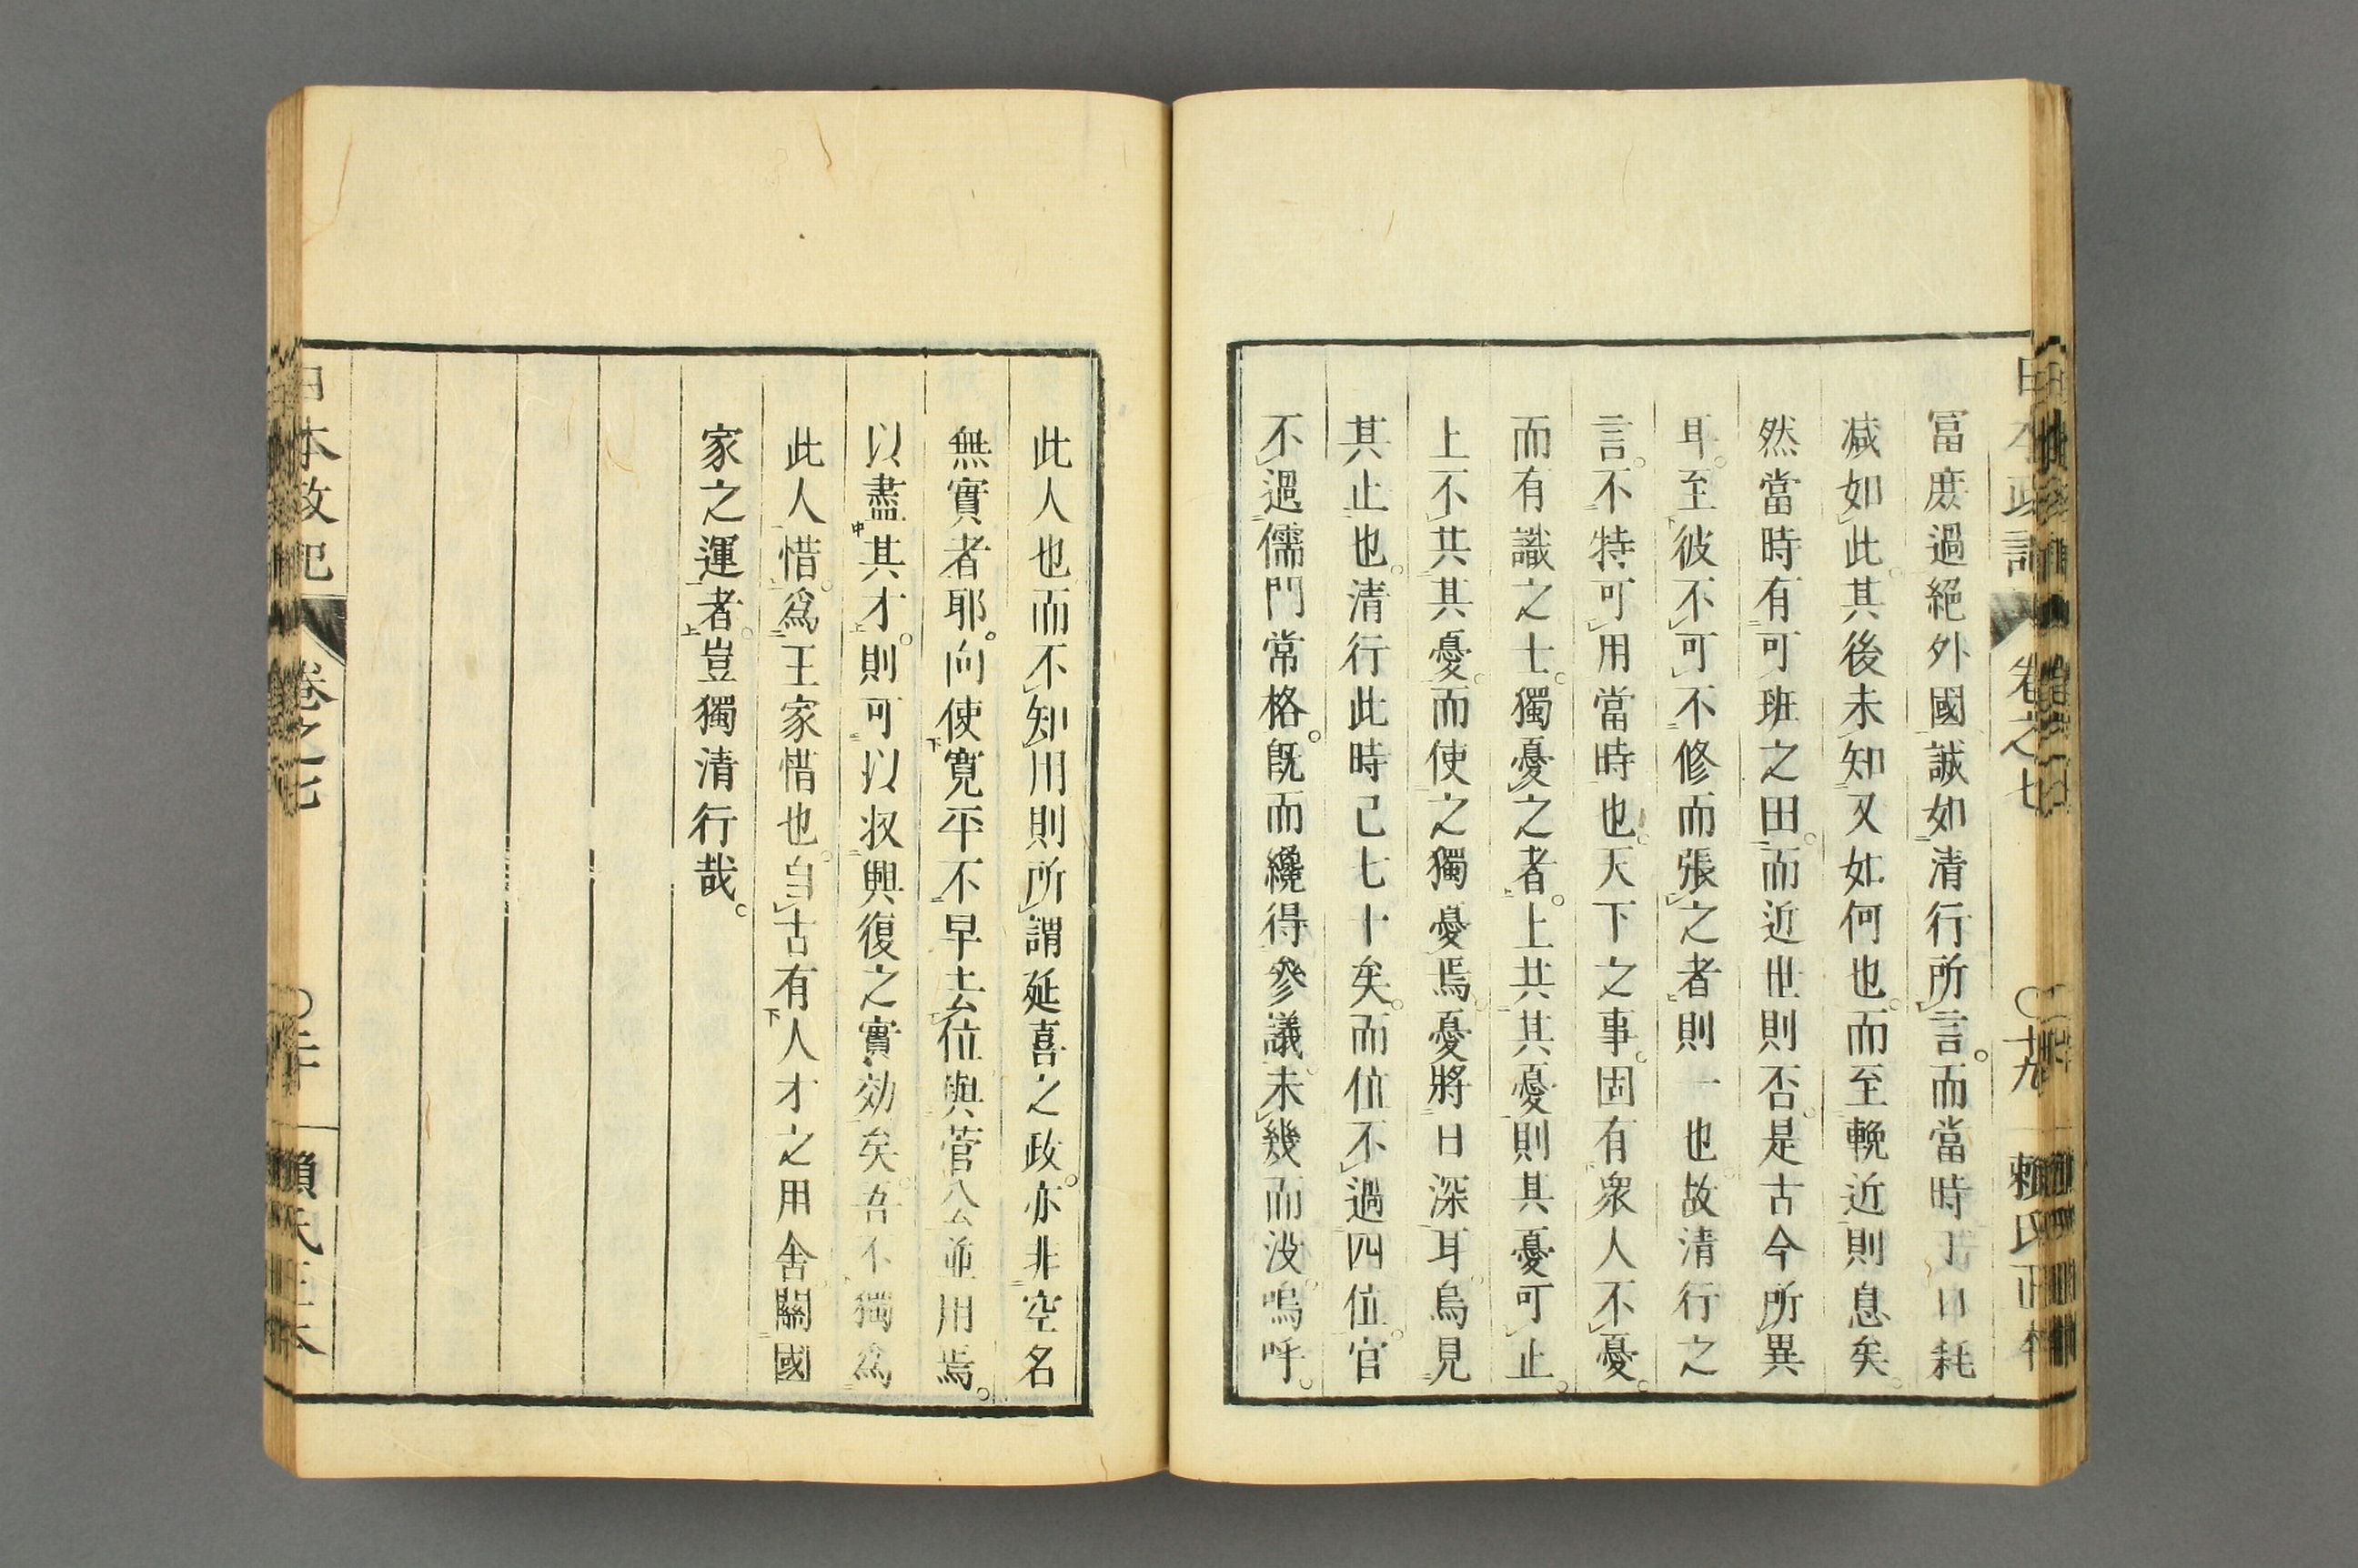 日本政記 卷之七 〇十九 賴氏正本
冨庶過絕外國誠如清行所言。而當時戶口耗
减如此。其後未知又如何也。而至輓近則息矣。
然當時有可班之田。而近世則否。是古今所異
耳。至彼不可不修而張之者則一也。故清行之
言。不特可用當時也。天下之事。固有衆人不憂。
而有識之士。獨憂之者。上共其憂則其憂可止。
上不共其憂。而使之獨憂焉。憂將日深耳。烏見
其止也。清行此時已七十矣。而位不過四位。官
不過儒門常格。既而纔得參議。未幾而没。嗚呼。
此人也而不知用則所謂延喜之政。亦非空名
無實者耶。向使寛平不早去位與菅公並用焉。
以盡其才。則可以收興復之實効矣。吾不獨爲
此人惜。爲王家惜也。自古有人才之用舍關國
家之運者。豈獨清行哉。
日本政記 卷之七 〇二十 賴氏正本